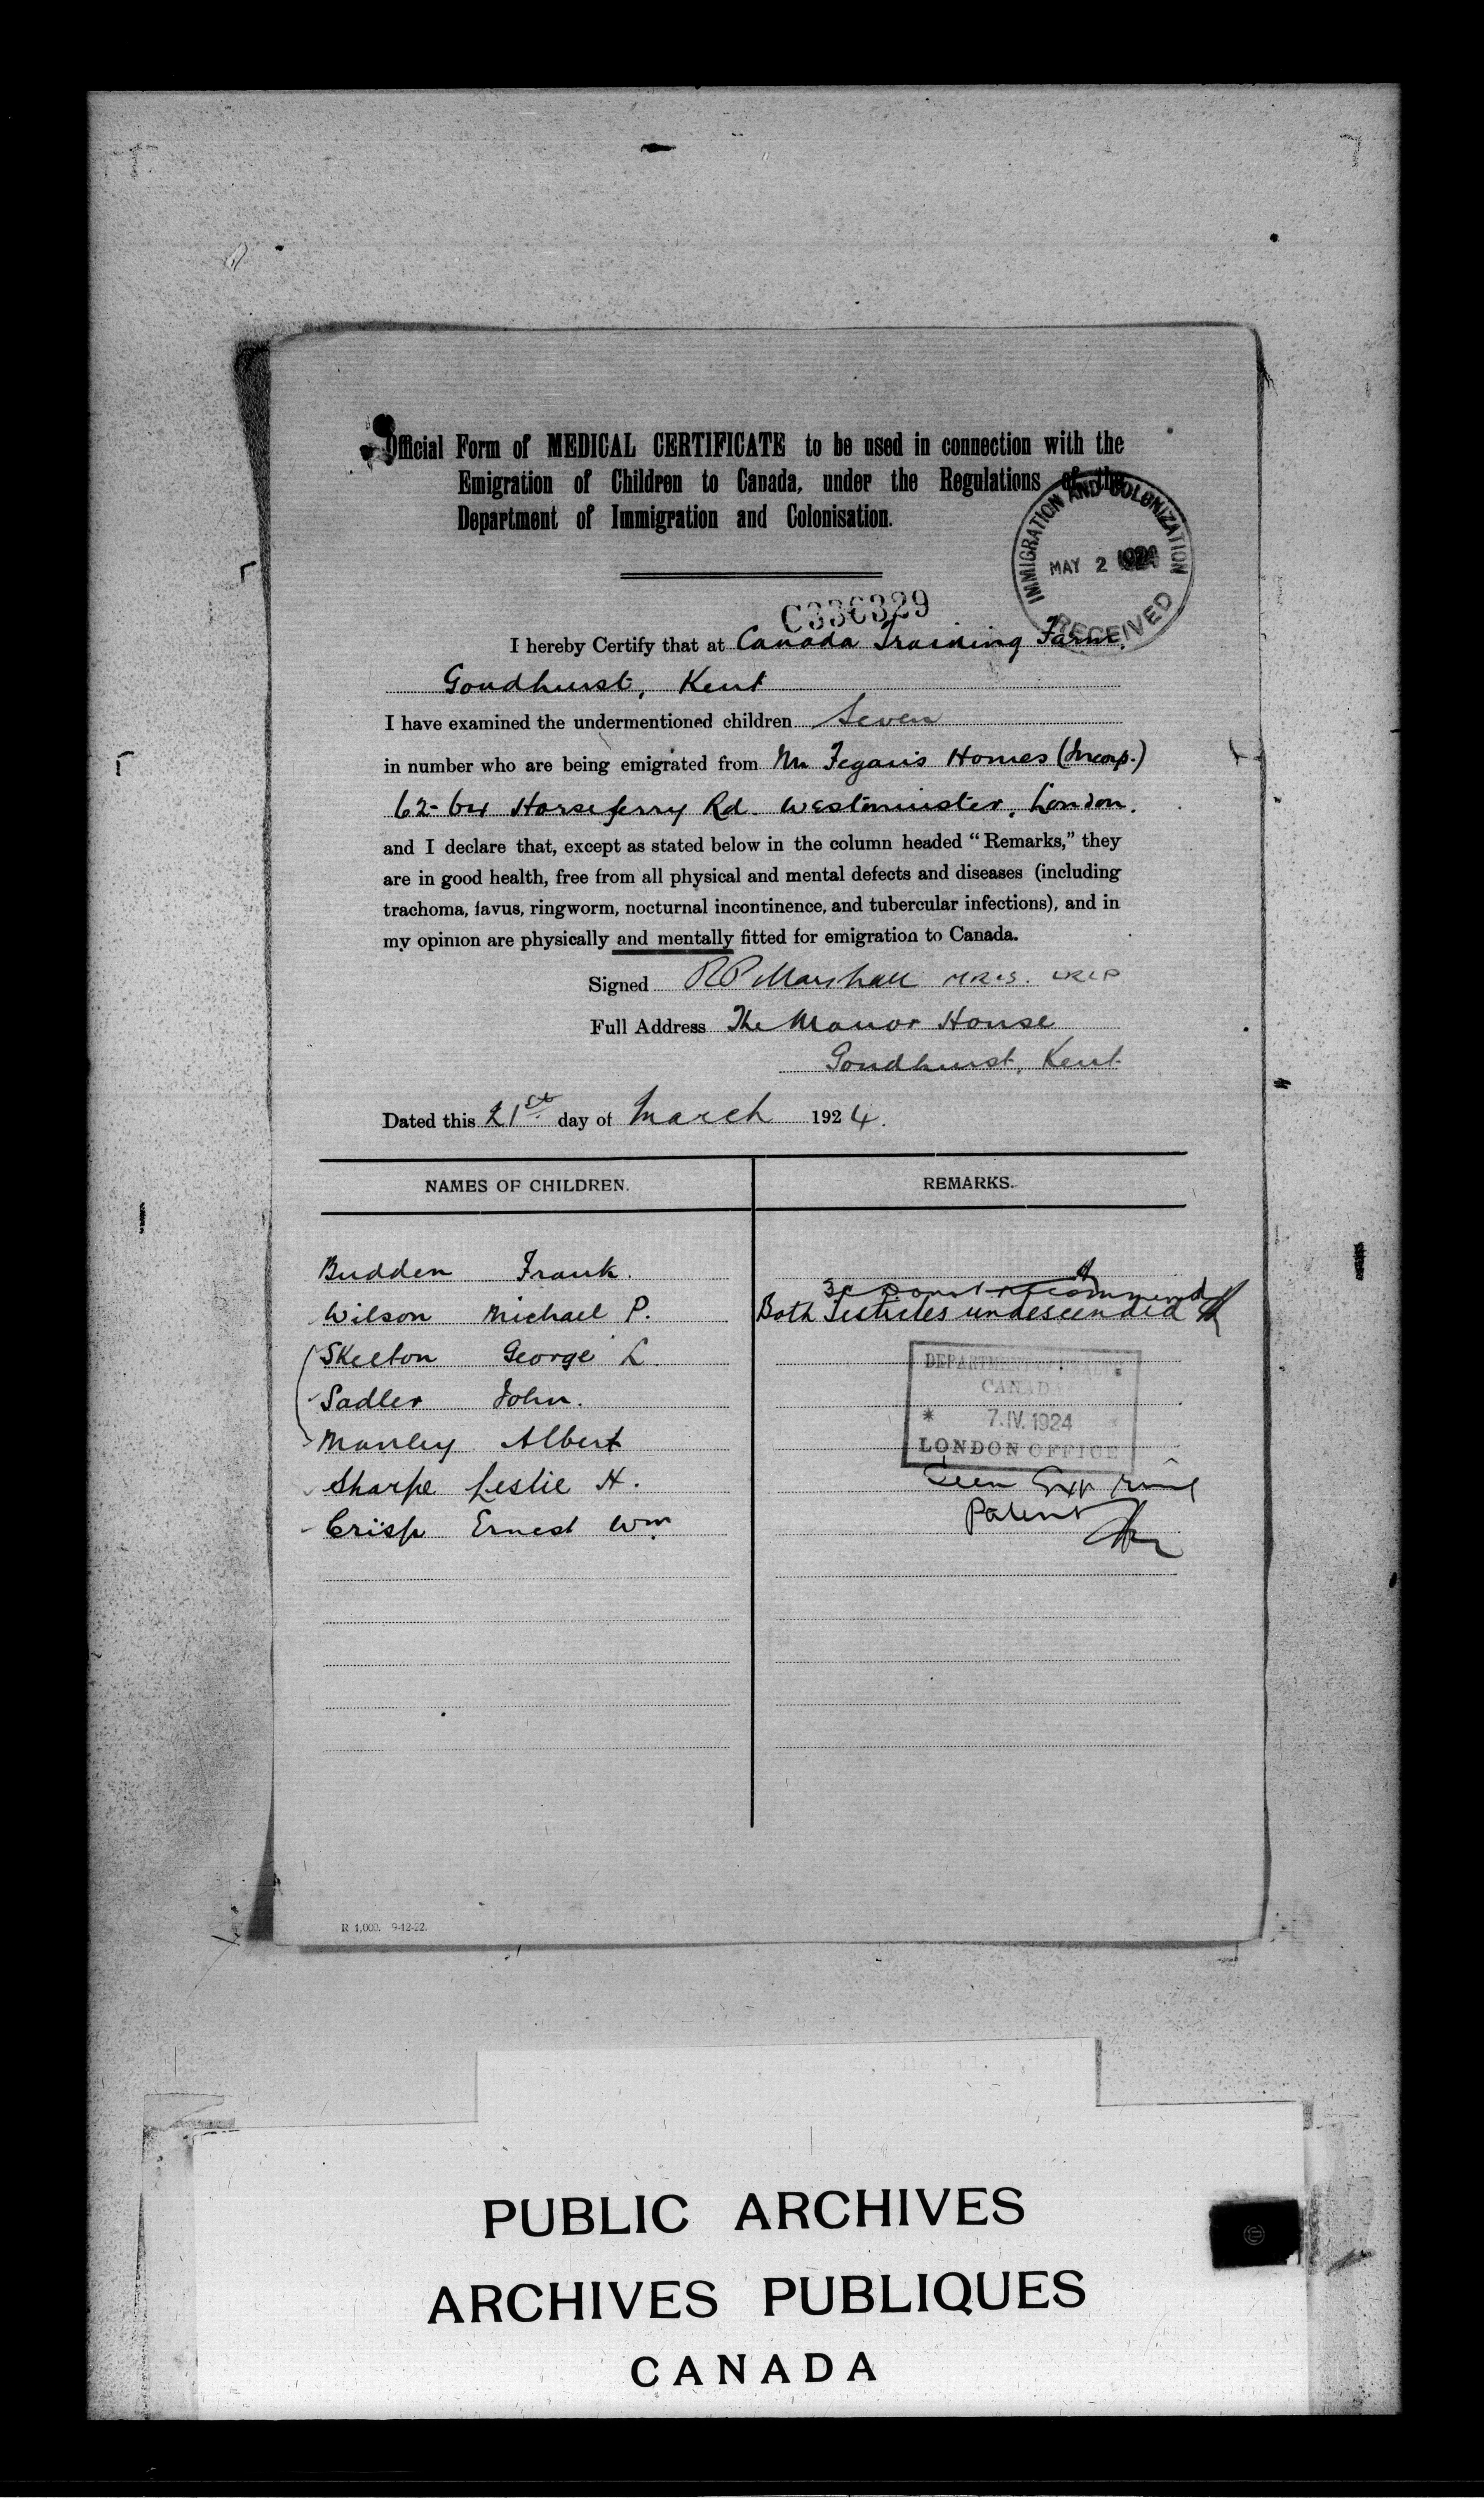 Official Form of MEDICAL CERTIFICATE to be used in connection with the
Emigration of Children to Canada, under the Regulations of the
Department of Immigration and Colonisation.
IMMIGRATION AND COLONIZATION
MAY 2 1924
RECEIVED
C336329
I hereby Certify that at Canada Training Farm,
Goudhurst, Kent
I have examined the undermentioned children Seven
in number who are being emigrated from Mr Fegan's Homes (Incorp.)
62-64 Horseferry Rd. Westminster, London.
and I declare that, except as stated below in the column headed “Remarks,” they
are in good health, free from all physical and mental defects and diseases (including
trachoma, favus, ringworm, nocturnal incontinence, and tubercular infections), and in
my opinion are physically and mentally fitted for emigration to Canada.
Signed RP Marshall MRCS. LRCP
Full Address The Manor House
Goudhurst, Kent
Dated this 21st day of March 1924.
NAMES OF CHILDREN. REMARKS.
Budden Frank.
Wilson Michael P. Both Testicles undescended
Skelton George L.
Sadler John.
Manley Albert
Sharpe Leslie H.
Crisp Ernest Wm
DEPARTMENT OF HEALTH
CANADA
* 7.IV.1924 *
LONDON OFFICE
R 1,000. 9-12-22.
PUBLIC ARCHIVES
ARCHIVES PUBLIQUES
CANADA